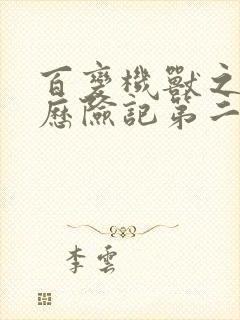 百變機獸之
歷險記第二
李雲